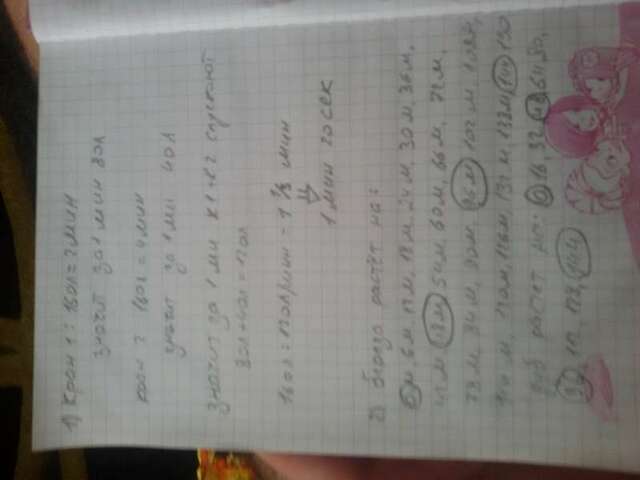 1) Кран 1: 160л = 2 мин
значит за 1 мин 80л
кран 2 160л = 4 мин
значит за 1 ми 40л
значит за 1 ми к1 + к2 спускают
80л + 40л = 120л
160л : 120л/мин = 1 1/3 мин
1 мин 20 сек
2) береза растёт на:
0м, 6м, 12м, 18м, 24м, 30м, 36м,
42м, 48м, 54м, 60м, 66м, 72м,
78м, 84м, 90м, 96м, 102м, 108м,
114м, 120м, 126м, 132м, 138м, 144, 150
дуб растет на: 0, 16, 32, 48, 64, 80,
96, 112, 128, 144